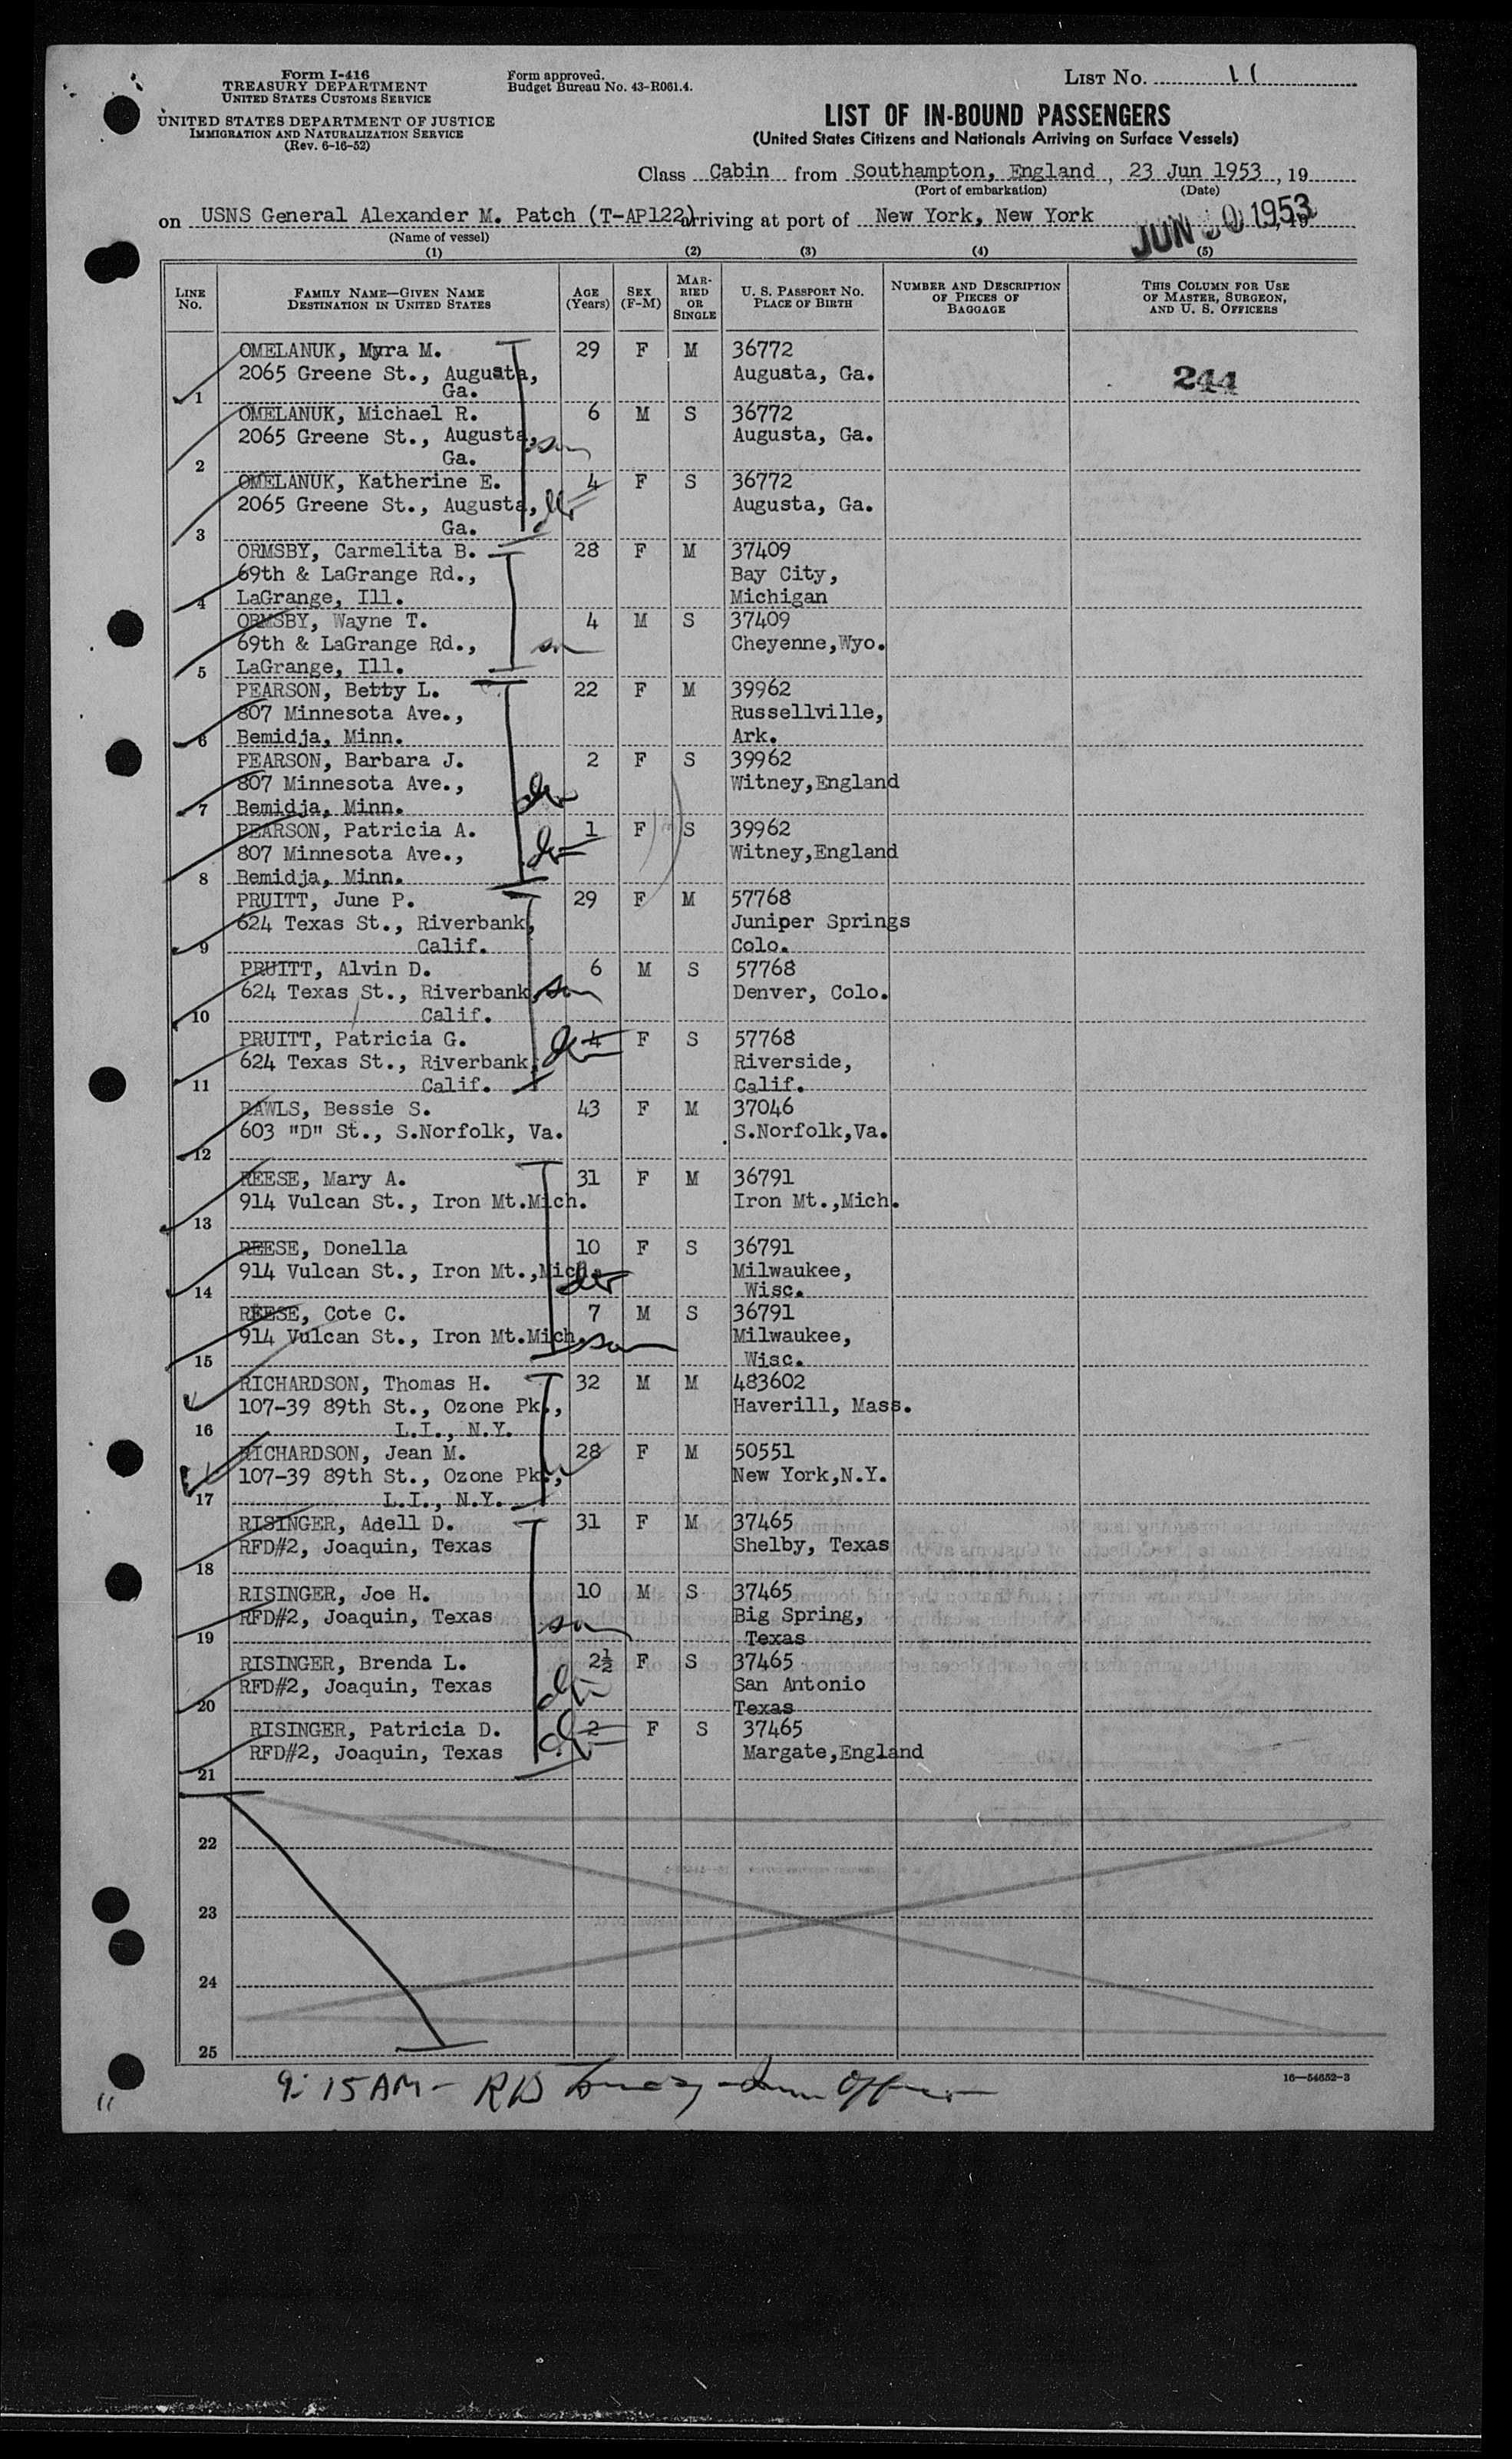 Form I-416
TREASURY DEPARTMENT
UNITED STATES CUSTOMS SERVICE
UNITED STATES DEPARTMENT OF JUSTICE
IMMIGRATION AND NATURALIZATION SERVICE
(Rev. 6-16-52)
Form approved.
Budget Bureau No. 43-R061.4.
LIST No. 11
LIST OF IN-BOUND PASSENGERS
(United States Citizens and Nationals Arriving on Surface Vessels)
Class Cabin from Southampton, England, 23 Jun 1953, 19
(Port of embarkation) (Date)
on USNS General Alexander M. Patch (T-AP122) arriving at port of New York, New York JUN 30 1953, 19
(Name of vessel)
(1) (2) (3) (4) (5)
LINE No. FAMILY NAME—GIVEN NAME DESTINATION IN UNITED STATES AGE (Years) SEX (F-M) MARRIED OR SINGLE U. S. PASSPORT NO. PLACE OF BIRTH NUMBER AND DESCRIPTION OF PIECES OF BAGGAGE THIS COLUMN FOR USE OF MASTER, SURGEON, AND U. S. OFFICERS
OMELANUK, Myra M. 29 F M 36772
2065 Greene St., Augusta, Augusta, Ga. 244
1 Ga.
OMELANUK, Michael R. 6 M S 36772
2065 Greene St., Augusta, son Augusta, Ga.
2 Ga.
OMELANUK, Katherine E. 4 F S 36772
2065 Greene St., Augusta, dtr Augusta, Ga.
3 Ga.
ORMSBY, Carmelita B. 28 F M 37409
69th & LaGrange Rd., Bay City,
4 LaGrange, Ill. Michigan
ORMSBY, Wayne T. 4 M S 37409
69th & LaGrange Rd., son Cheyenne,Wyo.
5 LaGrange, Ill.
PEARSON, Betty L. 22 F M 39962
807 Minnesota Ave., Russellville,
6 Bemidja, Minn. Ark.
PEARSON, Barbara J. 2 F S 39962
807 Minnesota Ave., dtr Witney,England
7 Bemidja, Minn.
PEARSON, Patricia A. 1 F S 39962
807 Minnesota Ave., dtr Witney,England
8 Bemidja, Minn.
PRUITT, June P. 29 F M 57768
624 Texas St., Riverbank, Juniper Springs
9 Calif. Colo.
PRUITT, Alvin D. 6 M S 57768
624 Texas St., Riverbank, son Denver, Colo.
10 Calif.
PRUITT, Patricia G. dtr 4 F S 57768
624 Texas St., Riverbank, Riverside,
11 Calif. Calif.
RAWLS, Bessie S. 43 F M 37046
603 "D" St., S.Norfolk, Va. S.Norfolk,Va.
12
REESE, Mary A. 31 F M 36791
914 Vulcan St., Iron Mt.Mich. Iron Mt.,Mich.
13
REESE, Donella 10 F S 36791
914 Vulcan St., Iron Mt.,Mich. dtr Milwaukee,
14 Wisc.
REESE, Cote C. 7 M S 36791
914 Vulcan St., Iron Mt.Mich. son Milwaukee,
15 Wisc.
RICHARDSON, Thomas H. 32 M M 483602
107-39 89th St., Ozone Pk., Haverill, Mass.
16 L.I., N.Y.
RICHARDSON, Jean M. 28 F M 50551
107-39 89th St., Ozone Pk., w New York,N.Y.
17 L.I., N.Y.
RISINGER, Adell D. 31 F M 37465
RFD#2, Joaquin, Texas Shelby, Texas
18
RISINGER, Joe H. 10 M S 37465
RFD#2, Joaquin, Texas son Big Spring,
19 Texas
RISINGER, Brenda L. 2½ F S 37465
RFD#2, Joaquin, Texas dtr San Antonio
20 Texas
RISINGER, Patricia D. 2 F S 37465
RFD#2, Joaquin, Texas dtr Margate,England
21
22
23
24
25
9:15 AM - RB Imm Officer
16—54652-3
11